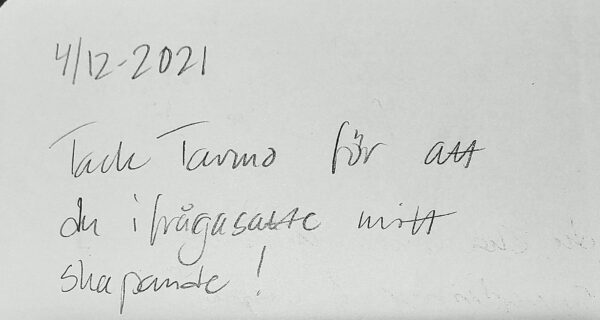 4/12-2021
Tack Tarmo för att
du ifrågasatte mitt
skapande!